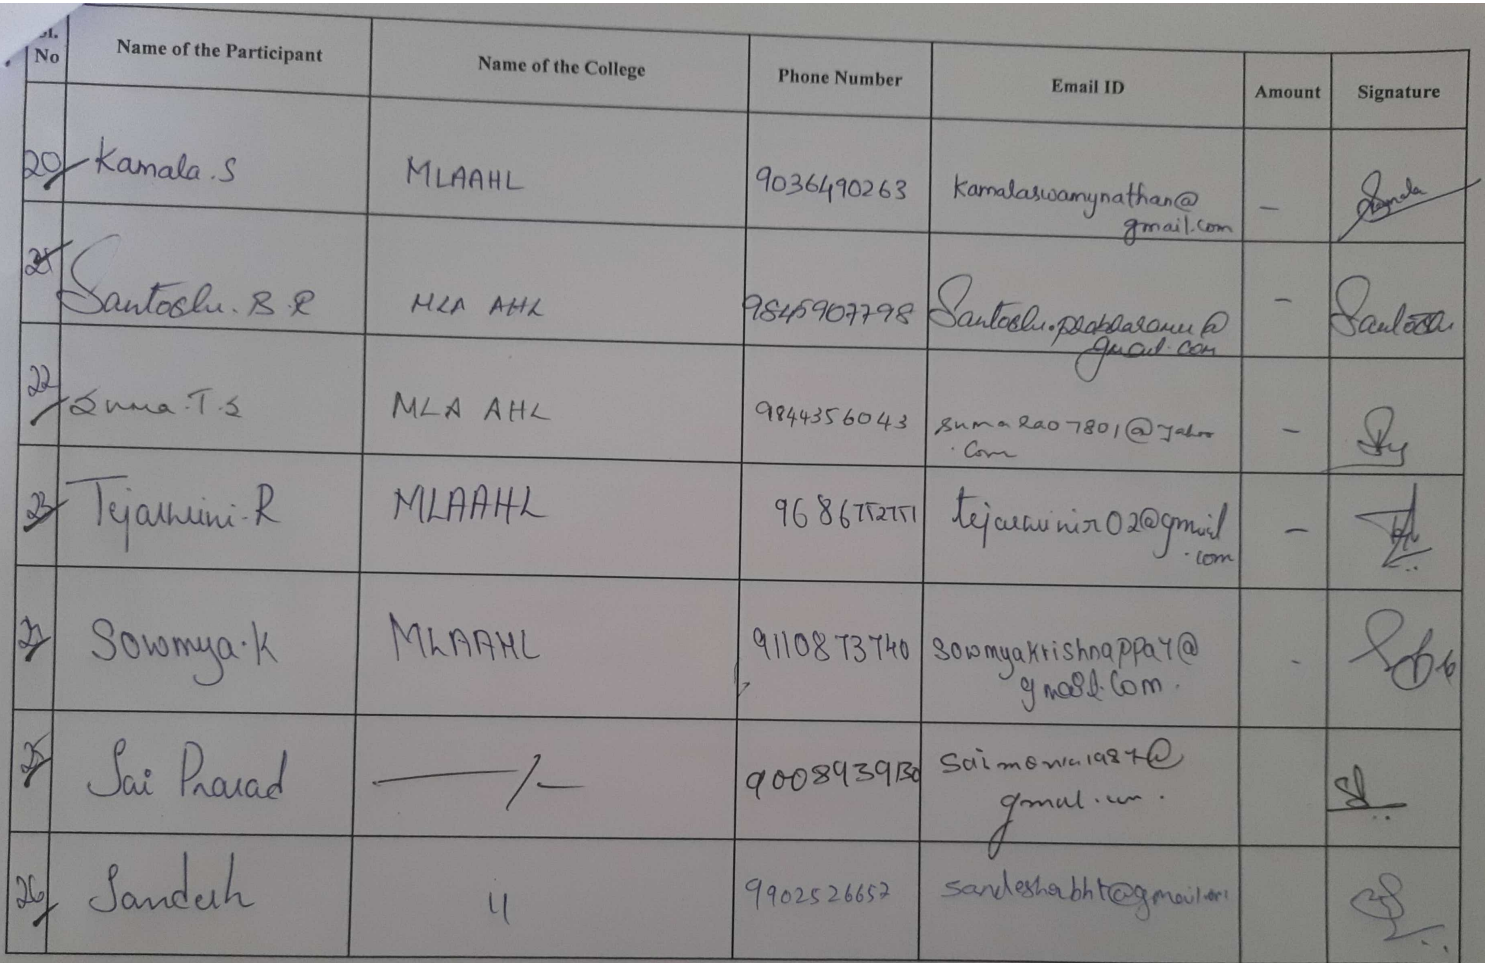 Sl. No Name of the Participant Name of the College Phone Number Email ID Amount Signature
20 Kamala.S MLAAHL 9036490263 kamalaswamynathan@ –
gmail.com
21 Santoshu.B.R MLA AHL 9845907798 –
gmail.com
22 Suma.T.S MLA AHL 9844356043 sumarao7801@yahoo –
.com
23 Tejaswini.R MLAAHL 9686752751 tejaswinir02@gmail –
.com
Sowmya.K MLAAHL 9110873740 sowmyakrishnappa4@ -
gmail.com.
25 Sai Prasad —/— 9008939130
26 Sandesh 11 9902526652 sandeshabht@gmail.com